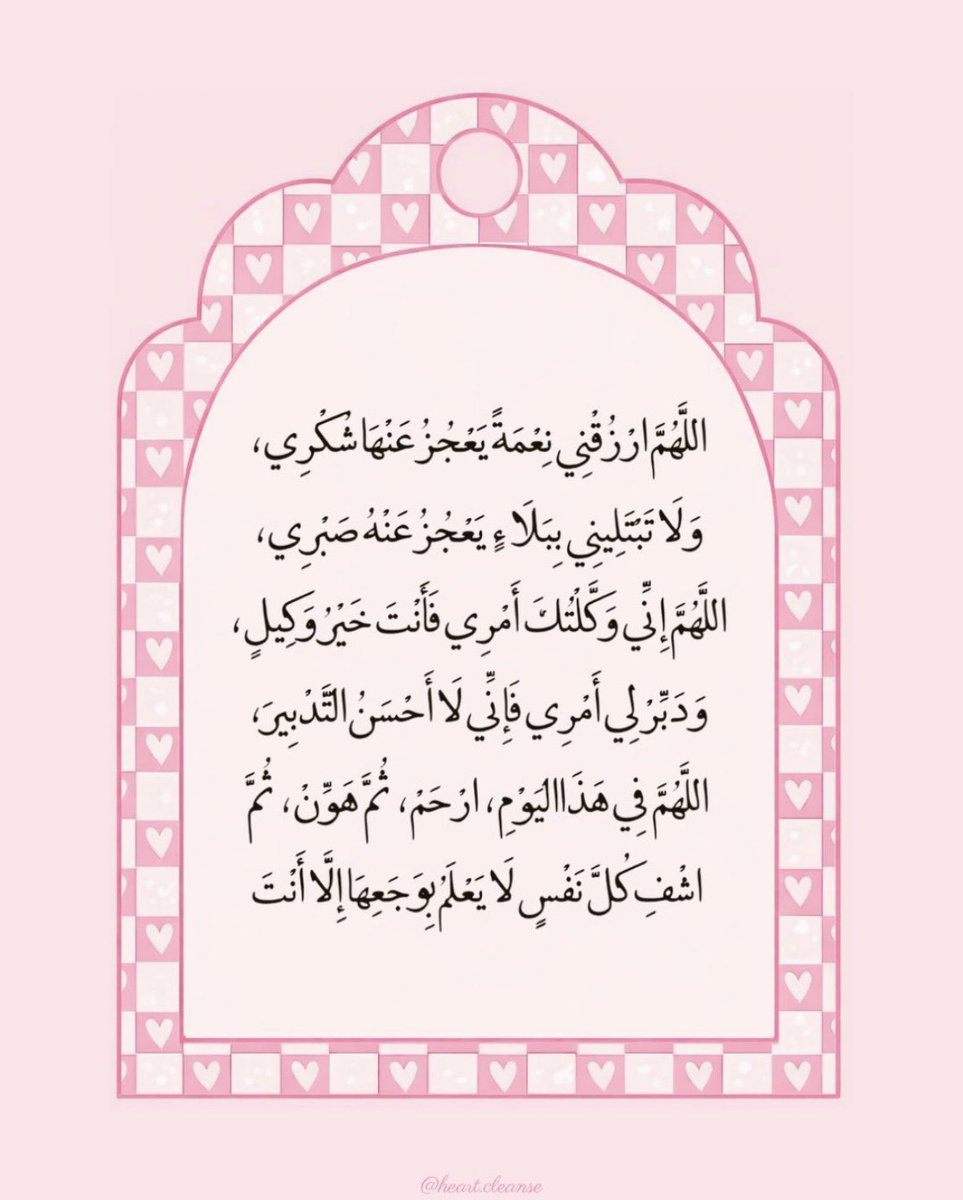 اللَّهُمَّ ارْزُقْنِي نِعْمَةً يَعْجُزُ عَنْهَا شُكْرِي،
وَلَا تَبْتَلِينِي بِبَلَاءٍ يَعْجُزُ عَنْهُ صَبْرِي،
اللَّهُمَّ إِنِّي وَكَّلْتُكَ أَمْرِي فَأَنْتَ خَيْرُ وَكِيلٍ،
وَدَبِّرْ لِي أَمْرِي فَإِنِّي لَا أَحْسَنُ التَّدْبِيرَ،
اللَّهُمَّ فِي هَذَا اليَوْمِ، ارْحَمْ، ثُمَّ هَوِّنْ، ثُمَّ
اشْفِ كُلَّ نَفْسٍ لَا يَعْلَمُ بِوَجَعِهَا إِلَّا أَنْتَ
@heart.cleanse